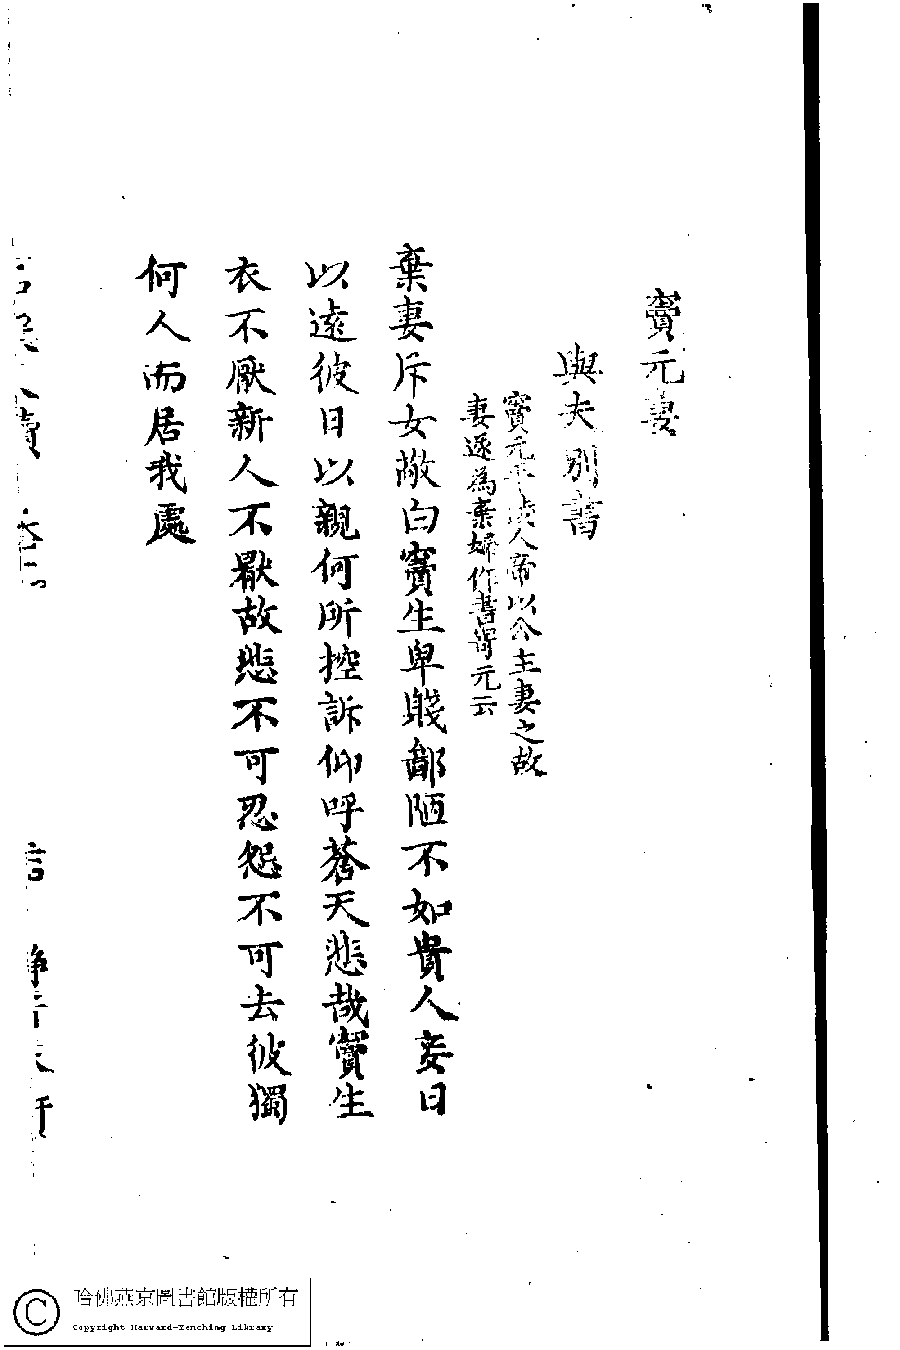 竇元妻
與夫別書
竇元平陵人帝以公主妻之故
妻遂為棄婦作書寄元云
棄妻斥女敢白竇生卑賤鄙陋不如貴人妾日
以遠彼日以親何所控訴仰呼蒼天悲哉竇生
衣不厭新人不厭故悲不可忍怨不可去彼獨
何人而居我處
哈佛燕京圖書館版權所有
Copyright Harvard-Yenching Library